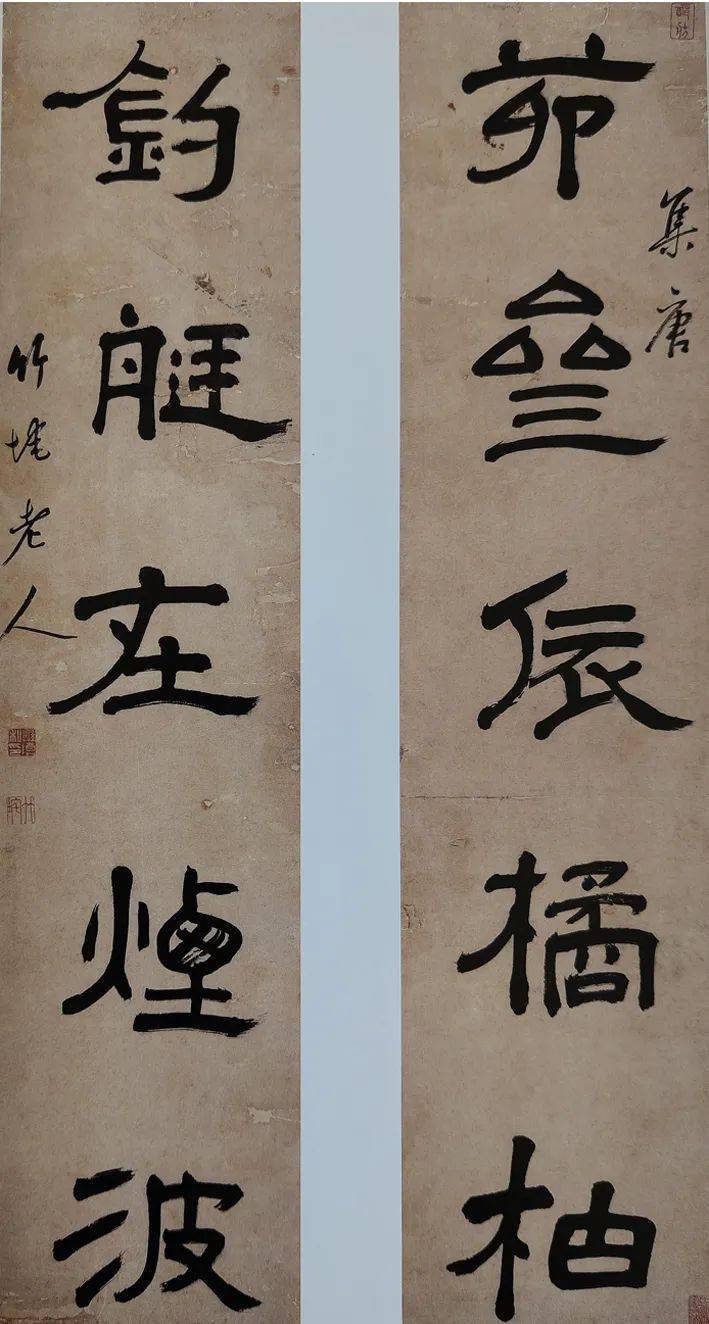 茆齋依橘柚
集唐
釣艇在煙波
竹垞老人